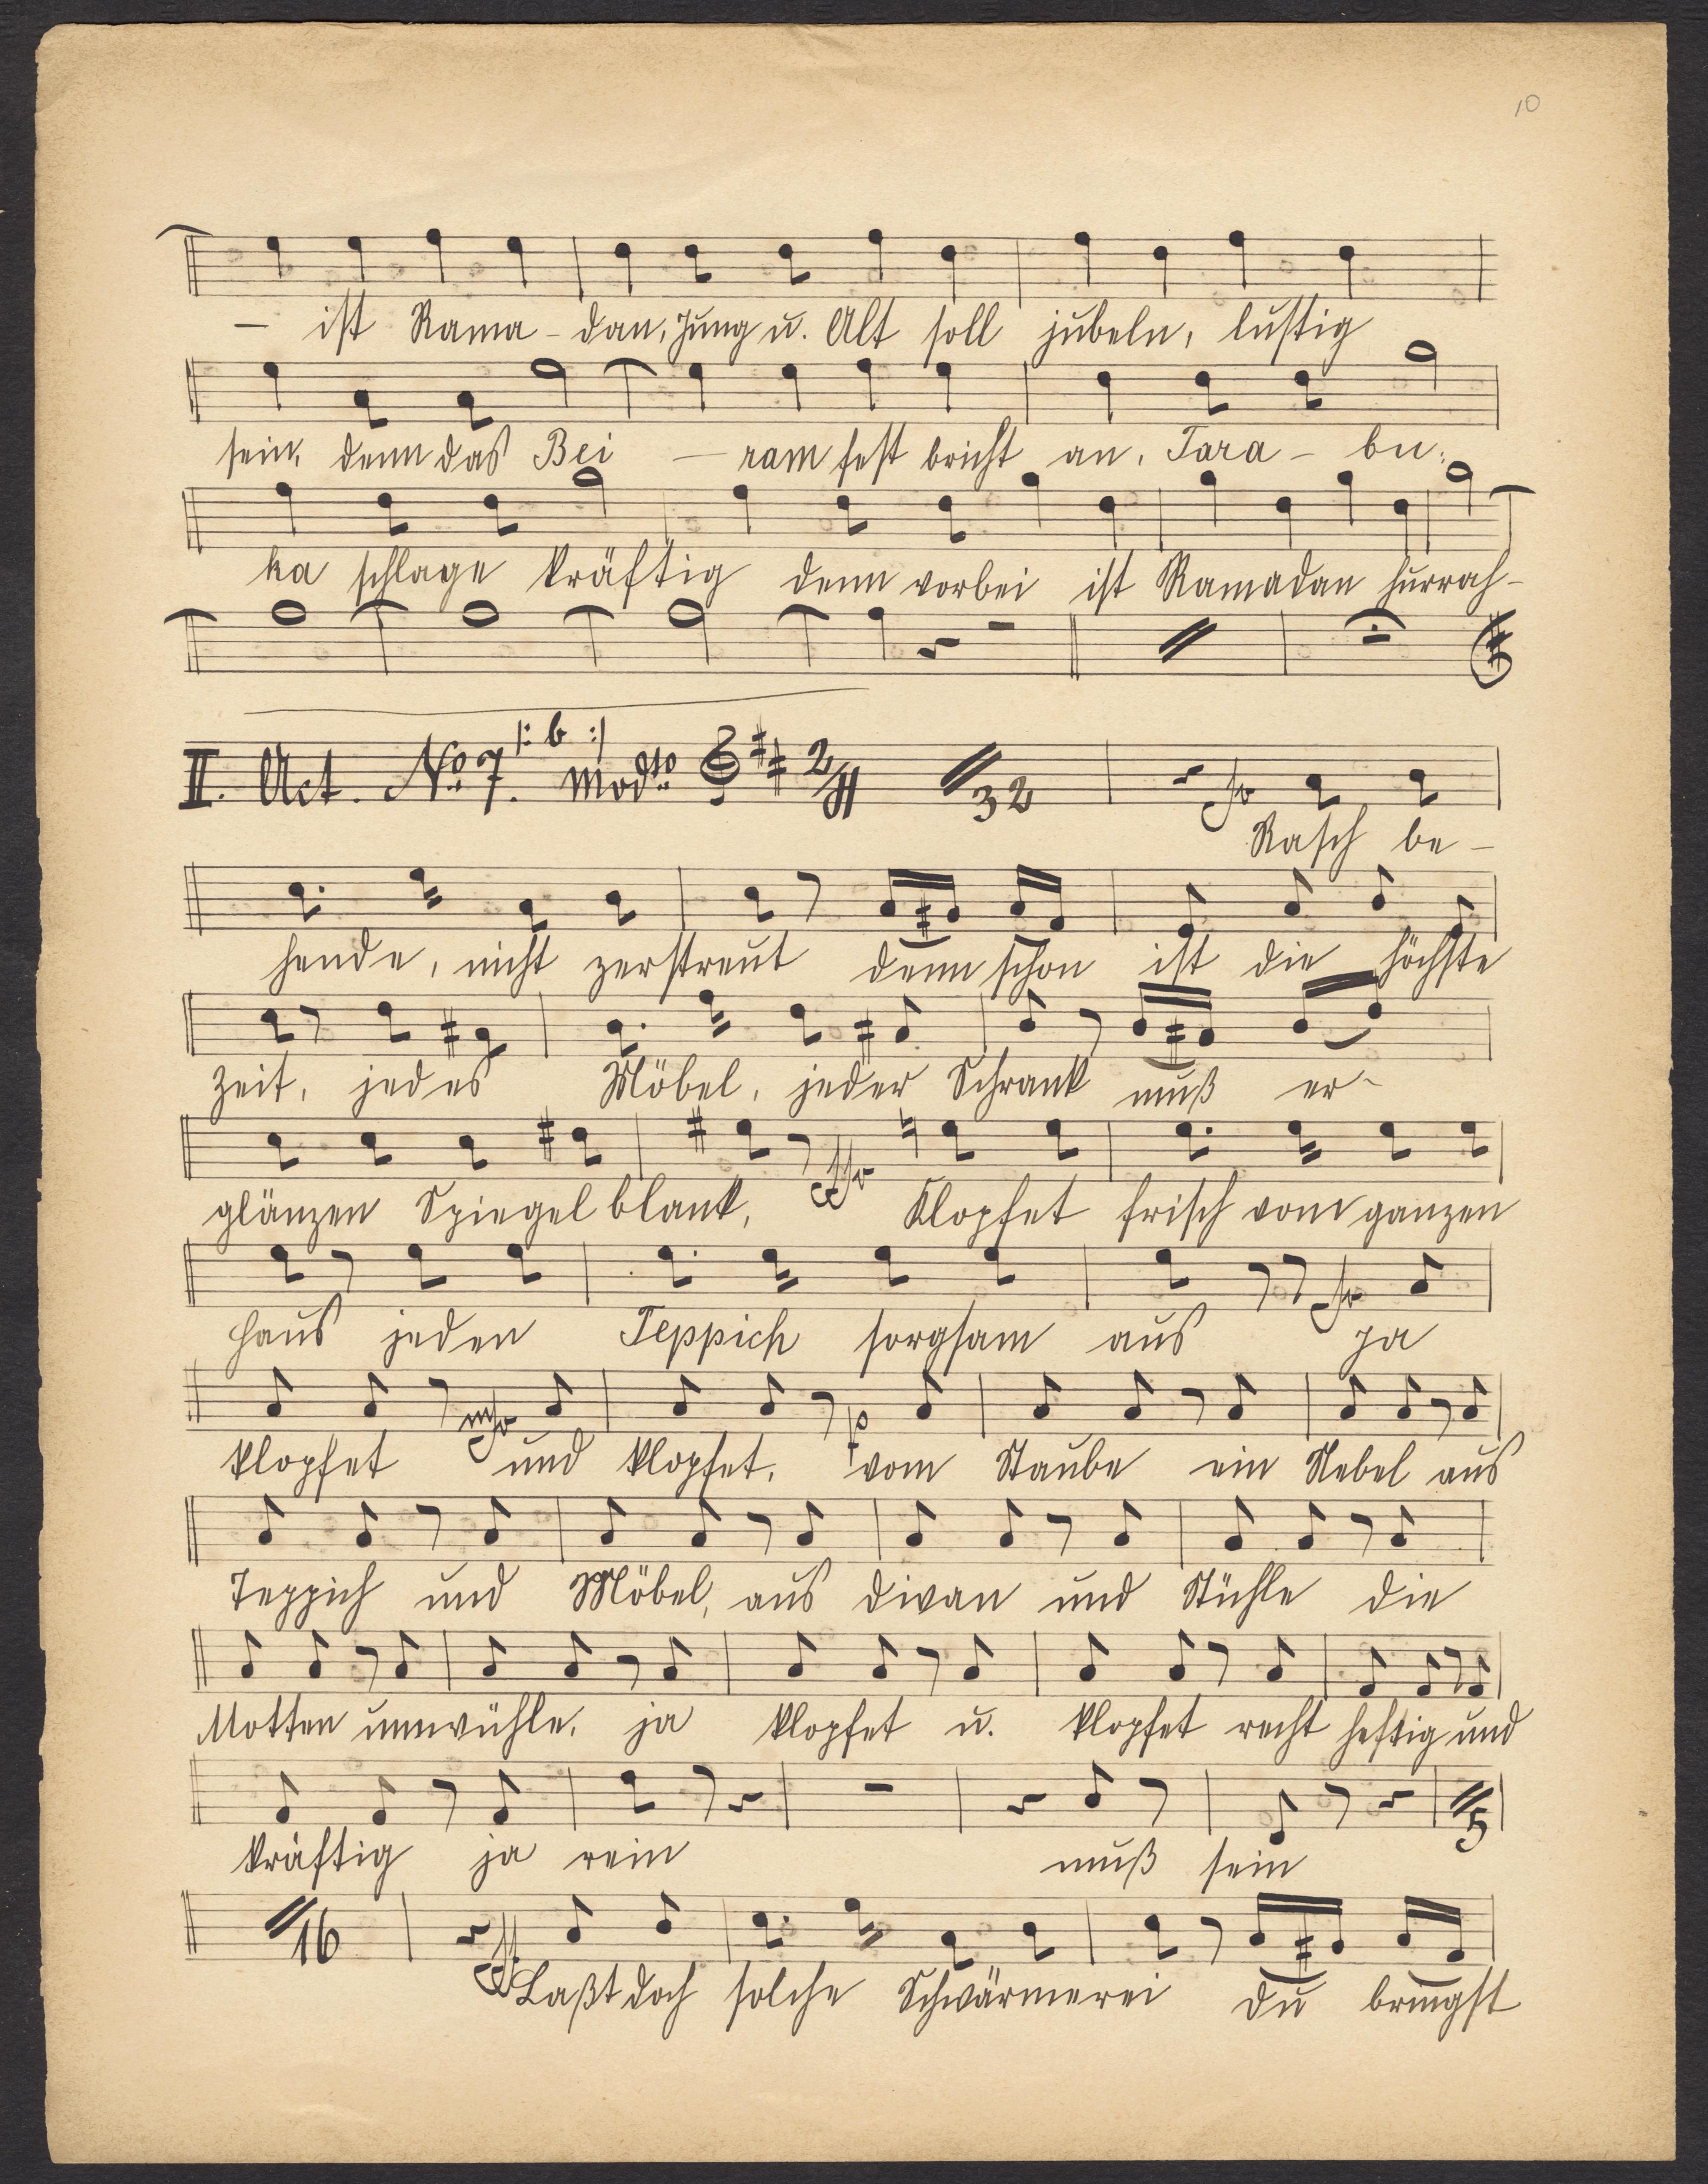 10
– ist Rama-dan, Jung u. Alt soll jubeln, lustig
sein, denn das Bei – ram fest bricht an, Tara- bu-
ka schlage kräftig denn vorbei ist Ramadan hurrah-
II. Act. No 7. |: b :| Modto 2/4 32
Rasch be-
hende, nicht zerstreut denn schon ist die höchste
Zeit, jedes Möbel, jeder Schrank muß er-
glänzen Spiegel blank, ff Klopfet frisch vom ganzen
Haus jeden Teppich sorgsam aus f ja
klopfet mf und klopfet, p vom Staube ein Nebel aus
Teppich und Möbel, aus Divan und Stühle die
Motten umwühle, ja klopfet u. klopfet recht heftig und
kräftig ja rein muß sein 5
16 ff Laßt doch solche Schwärmerei du bringst